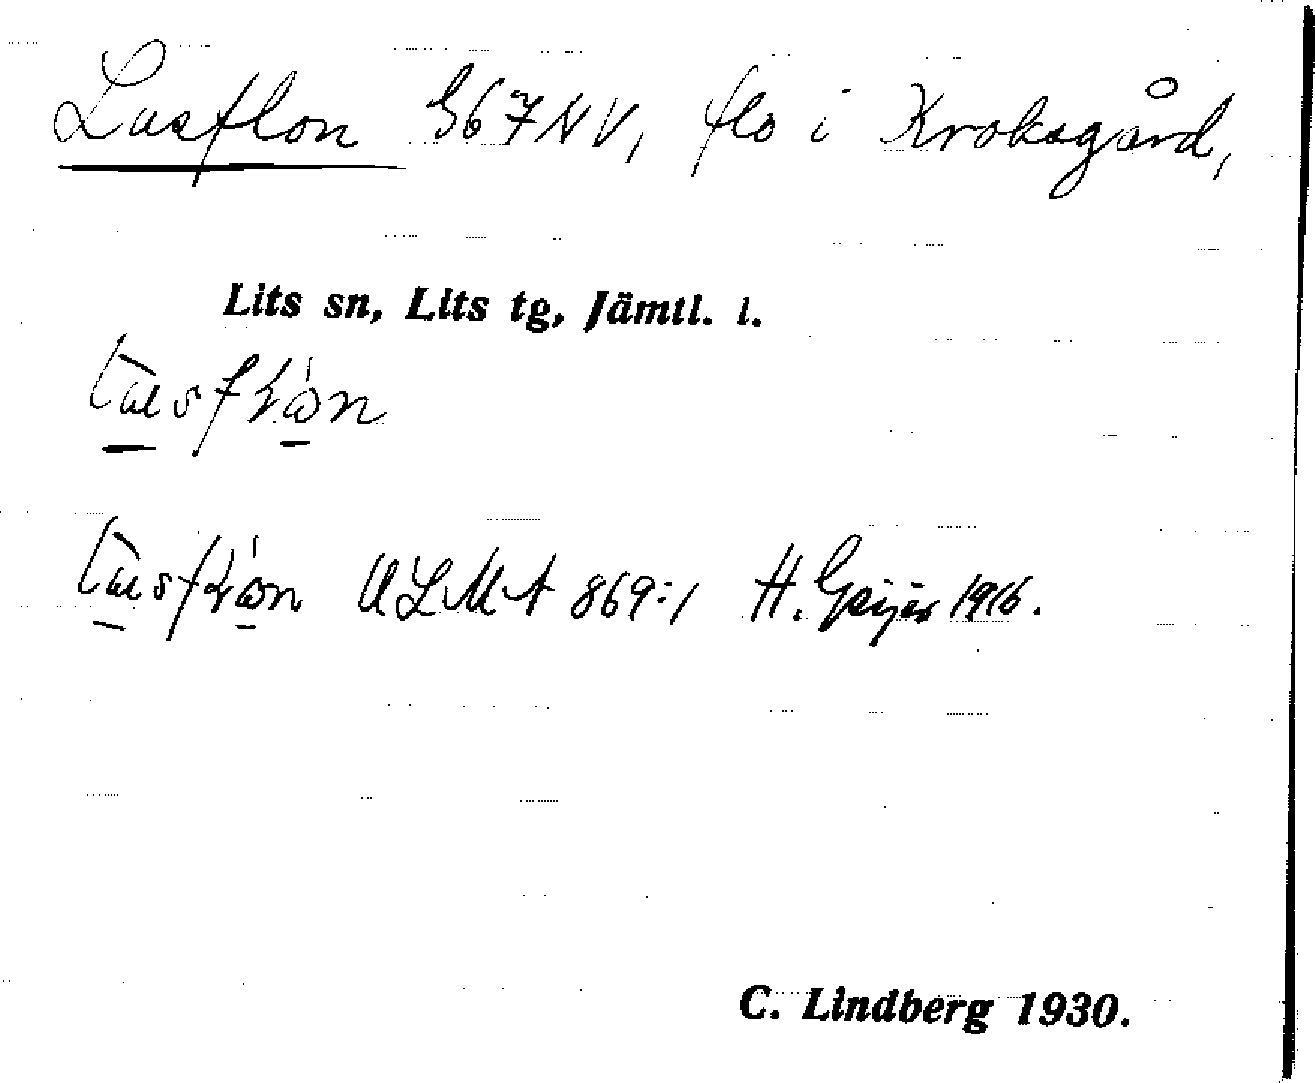 Lusflon 367NV, flo i Kroksgård,
Lits sn, Lits tg, Jämtl. l.
ULMA 869:1 H. Geijer 1916.
C. Lindberg 1930.